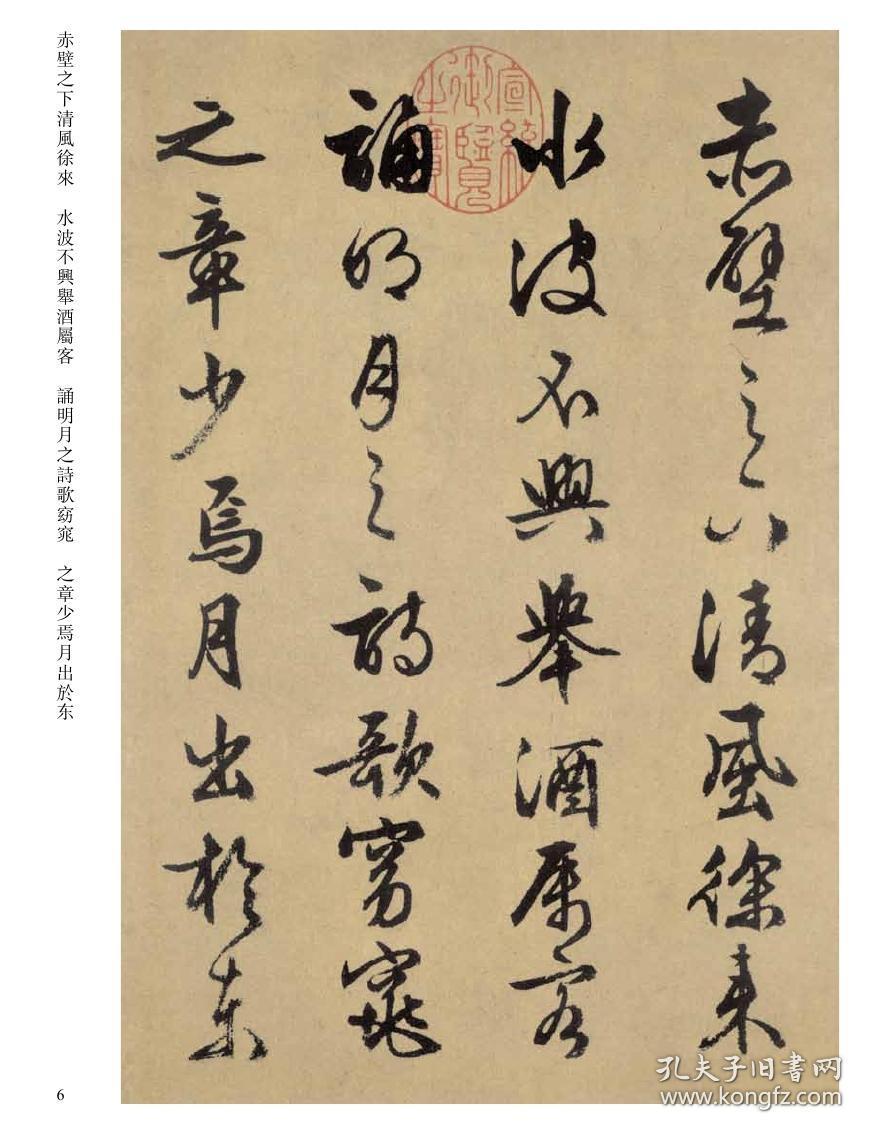 赤壁之下清風徐來
水波不興舉酒屬客
誦明月之詩歌窈窕
之章少焉月出於东
宣統御覽之寶
赤壁之下清風徐來　水波不興舉酒屬客　誦明月之詩歌窈窕　之章少焉月出於东
6
孔夫子旧书网
www.kongfz.com